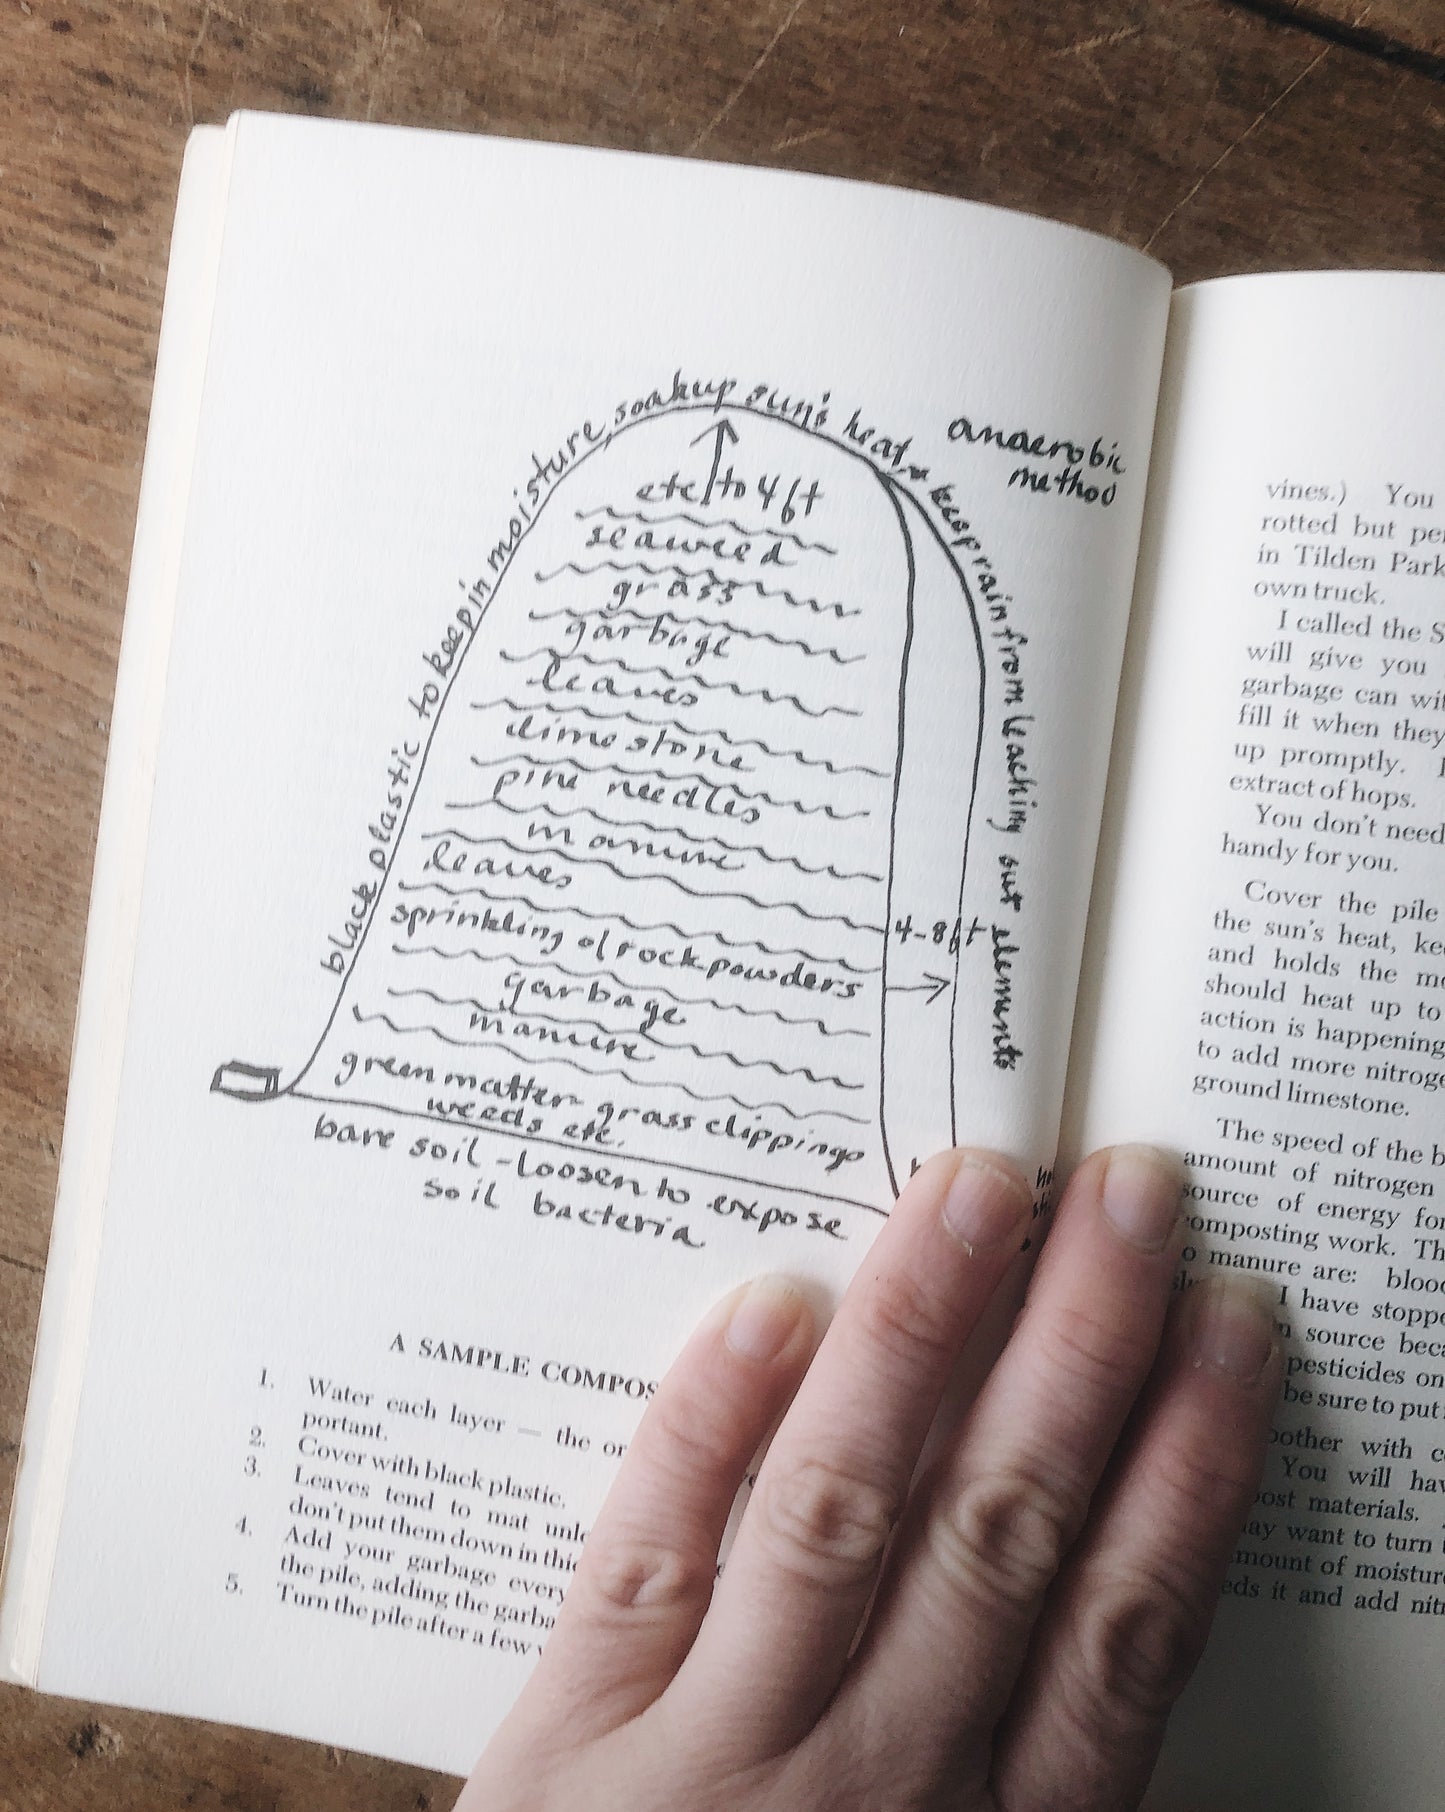 black plastic to keep in moisture soak up sun's heat & keep rain from leaching out elements
anaerobic
method
etc to 4 ft
seaweed
grass
garbage
leaves
limestone
pine needles
manure
leaves
sprinkling of rock powders
4-8 ft
garbage
manure
green matter - grass clippings
weeds etc.
bare soil - loosen to expose
soil bacteria
A SAMPLE COMPOS
1. Water each layer — the or
portant.
2. Cover with black plastic.
3. Leaves tend to mat unle
don't put them down in thic
4. Add your garbage every
the pile, adding the garba
5. Turn the pile after a few
vines.) You
rotted but pe
in Tilden Park
own truck.
I called the S
will give you
garbage can wit
fill it when they
up promptly.
extract of hops.
You don't need
handy for you.
Cover the pile
the sun's heat, kee
and holds the mo
should heat up to
action is happening
to add more nitroge
ground limestone.
The speed of the b
amount of nitrogen
source of energy for
omposting work. Th
o manure are: blood
I have stoppe
n source beca
pesticides on
be sure to put
other with c
You will hav
ost materials.
ay want to turn
mount of moisture
eds it and add nitr